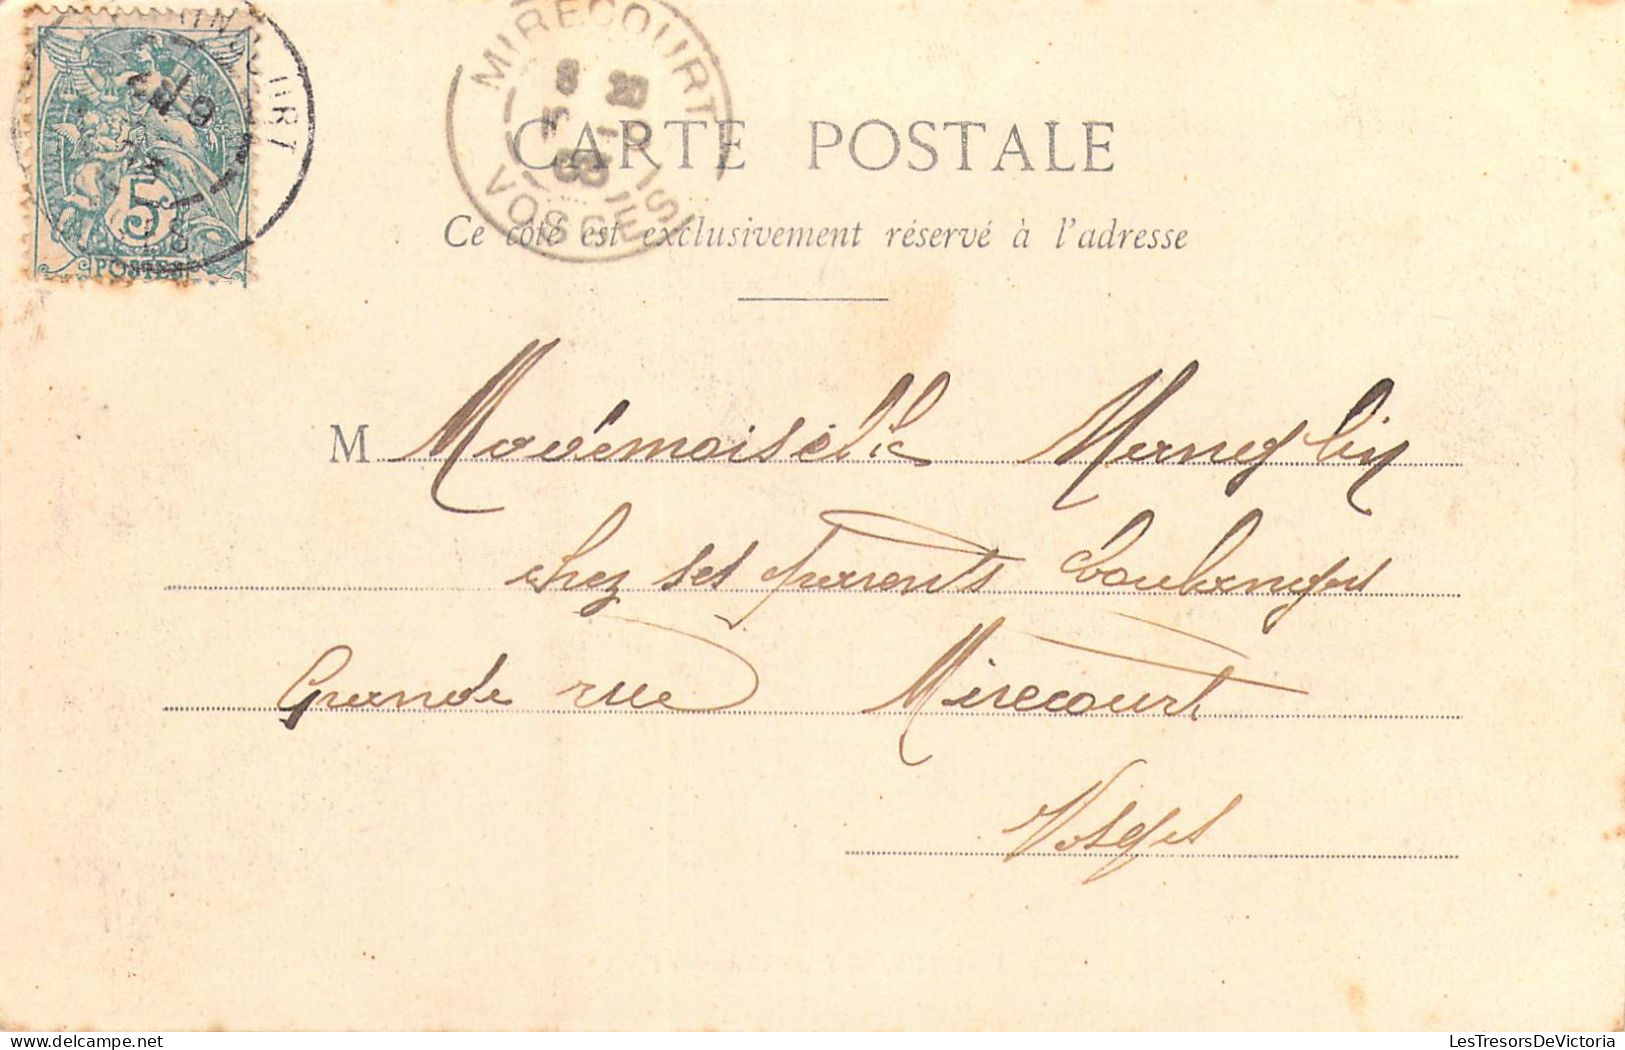 MIRECOURT
8 20
5
03
VOSGES
5
POSTES
CARTE POSTALE
Ce côté est exclusivement réservé à l'adresse
M Mademoiselle
chez ses parents boulangers
Grande rue Mirecourt
Vosges
LesTresorsDeVictoria